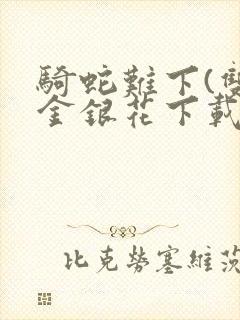 騎蛇難下(雙
金銀花下載
比克勞塞維茨